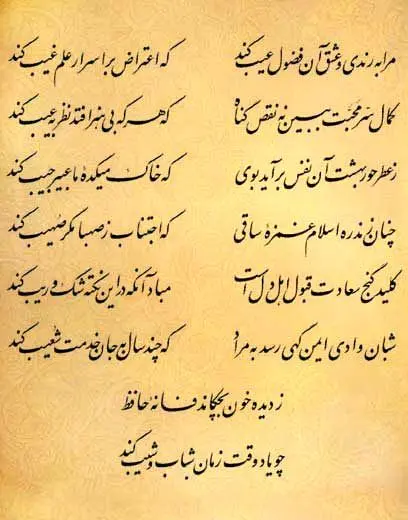 مرا به رندی و عشق آن فضول عیب کند که اعتراض بر اسرار علم غیب کند
کمال سر محبت ببین نه نقص گناه که هر که بی هنر افتد نظر به عیب کند
ز عطر حور بهشت آن نفس برآید بوی که خاک میکدهٔ ما عبیر جیب کند
چنان زند ره اسلام غمزهٔ ساقی که اجتناب ز صهبا مگر صهیب کند
کلید گنج سعادت قبول اهل دل است مباد آنکه در این نکته شک و ریب کند
شبان وادی ایمن گهی رسد به مراد که چند سال به جان خدمت شعیب کند
ز دیده خون بچکاند فسانهٔ حافظ
چو یاد وقت زمان شباب و شیب کند